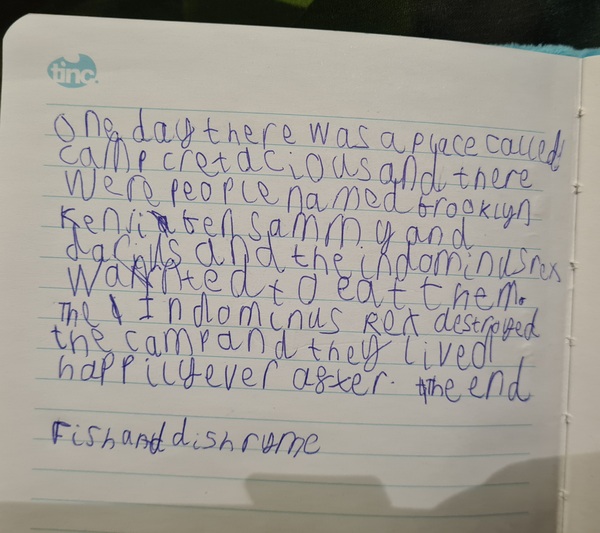 tinc
One day there was a place called
camp cretacious and there
were people named brooklyn
Kenji ben sammy and
darius and the indominus rex
wanted to eat them.
The Indominus Rex destroyed
the camp and they lived
happily ever after. the end
Fish and dish rome